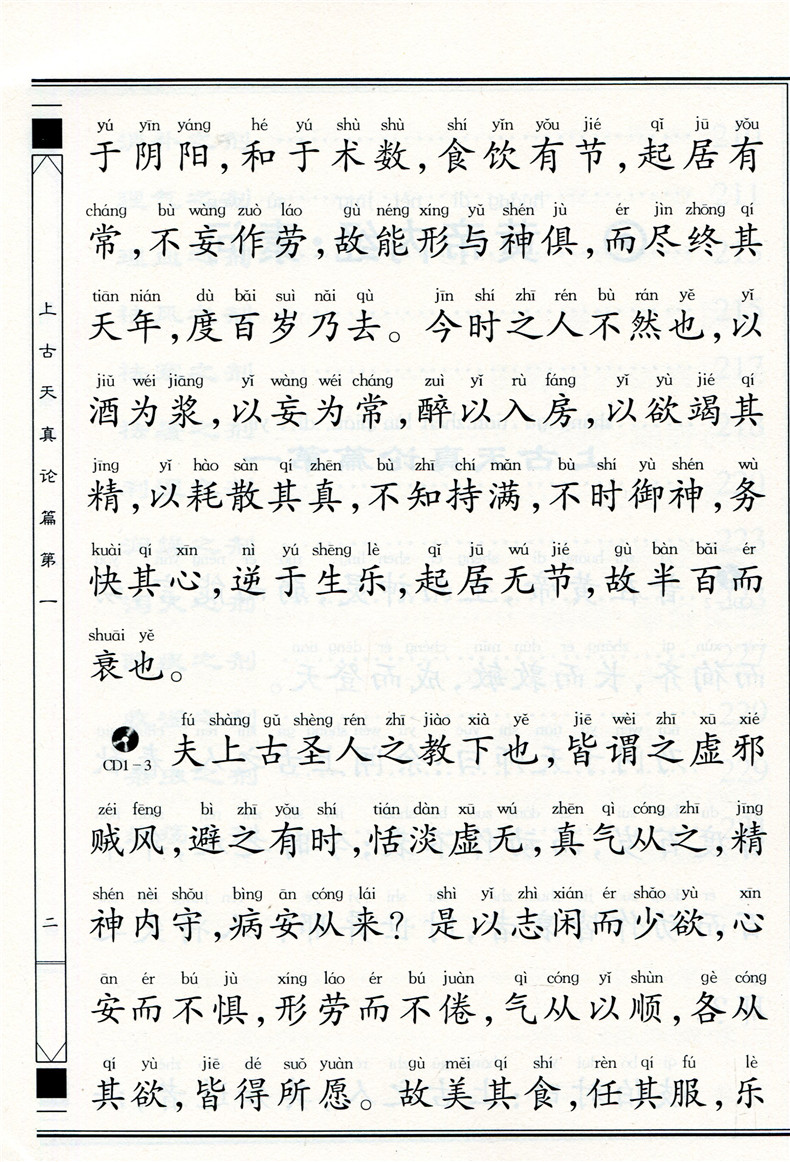 yú yīn yáng hé yú shù shù shí yǐn yǒu jié qǐ jū yǒu
于阴阳,和于术数,食饮有节,起居有
cháng bù wàng zuò láo gù néng xíng yǔ shén jù ér jìn zhōng qí
常,不妄作劳,故能形与神俱,而尽终其
tiān nián dù bǎi suì nǎi qù jīn shí zhī rén bù rán yě yǐ
天年,度百岁乃去。今时之人不然也,以
jiǔ wéi jiāng yǐ wàng wéi cháng zuì yǐ rù fáng yǐ yù jié qí
酒为浆,以妄为常,醉以入房,以欲竭其
jīng yǐ hào sàn qí zhēn bù zhī chí mǎn bù shí yù shén wù
精,以耗散其真,不知持满,不时御神,务
kuài qí xīn nì yú shēng lè qǐ jū wú jié gù bàn bǎi ér
快其心,逆于生乐,起居无节,故半百而
shuāi yě
衰也。
fú shàng gǔ shèng rén zhī jiào xià yě jiē wèi zhī xū xié
CD1-3 夫上古圣人之教下也,皆谓之虚邪
zéi fēng bì zhī yǒu shí tián dàn xū wú zhēn qì cóng zhī jīng
贼风,避之有时,恬淡虚无,真气从之,精
shén nèi shǒu bìng ān cóng lái shì yǐ zhì xián ér shǎo yù xīn
神内守,病安从来?是以志闲而少欲,心
ān ér bú jù xíng láo ér bú juàn qì cóng yǐ shùn gè cóng
安而不惧,形劳而不倦,气从以顺,各从
qí yù jiē dé suǒ yuàn gù měi qí shí rèn qí fú lè
其欲,皆得所愿。故美其食,任其服,乐
上古天真论篇第一
二